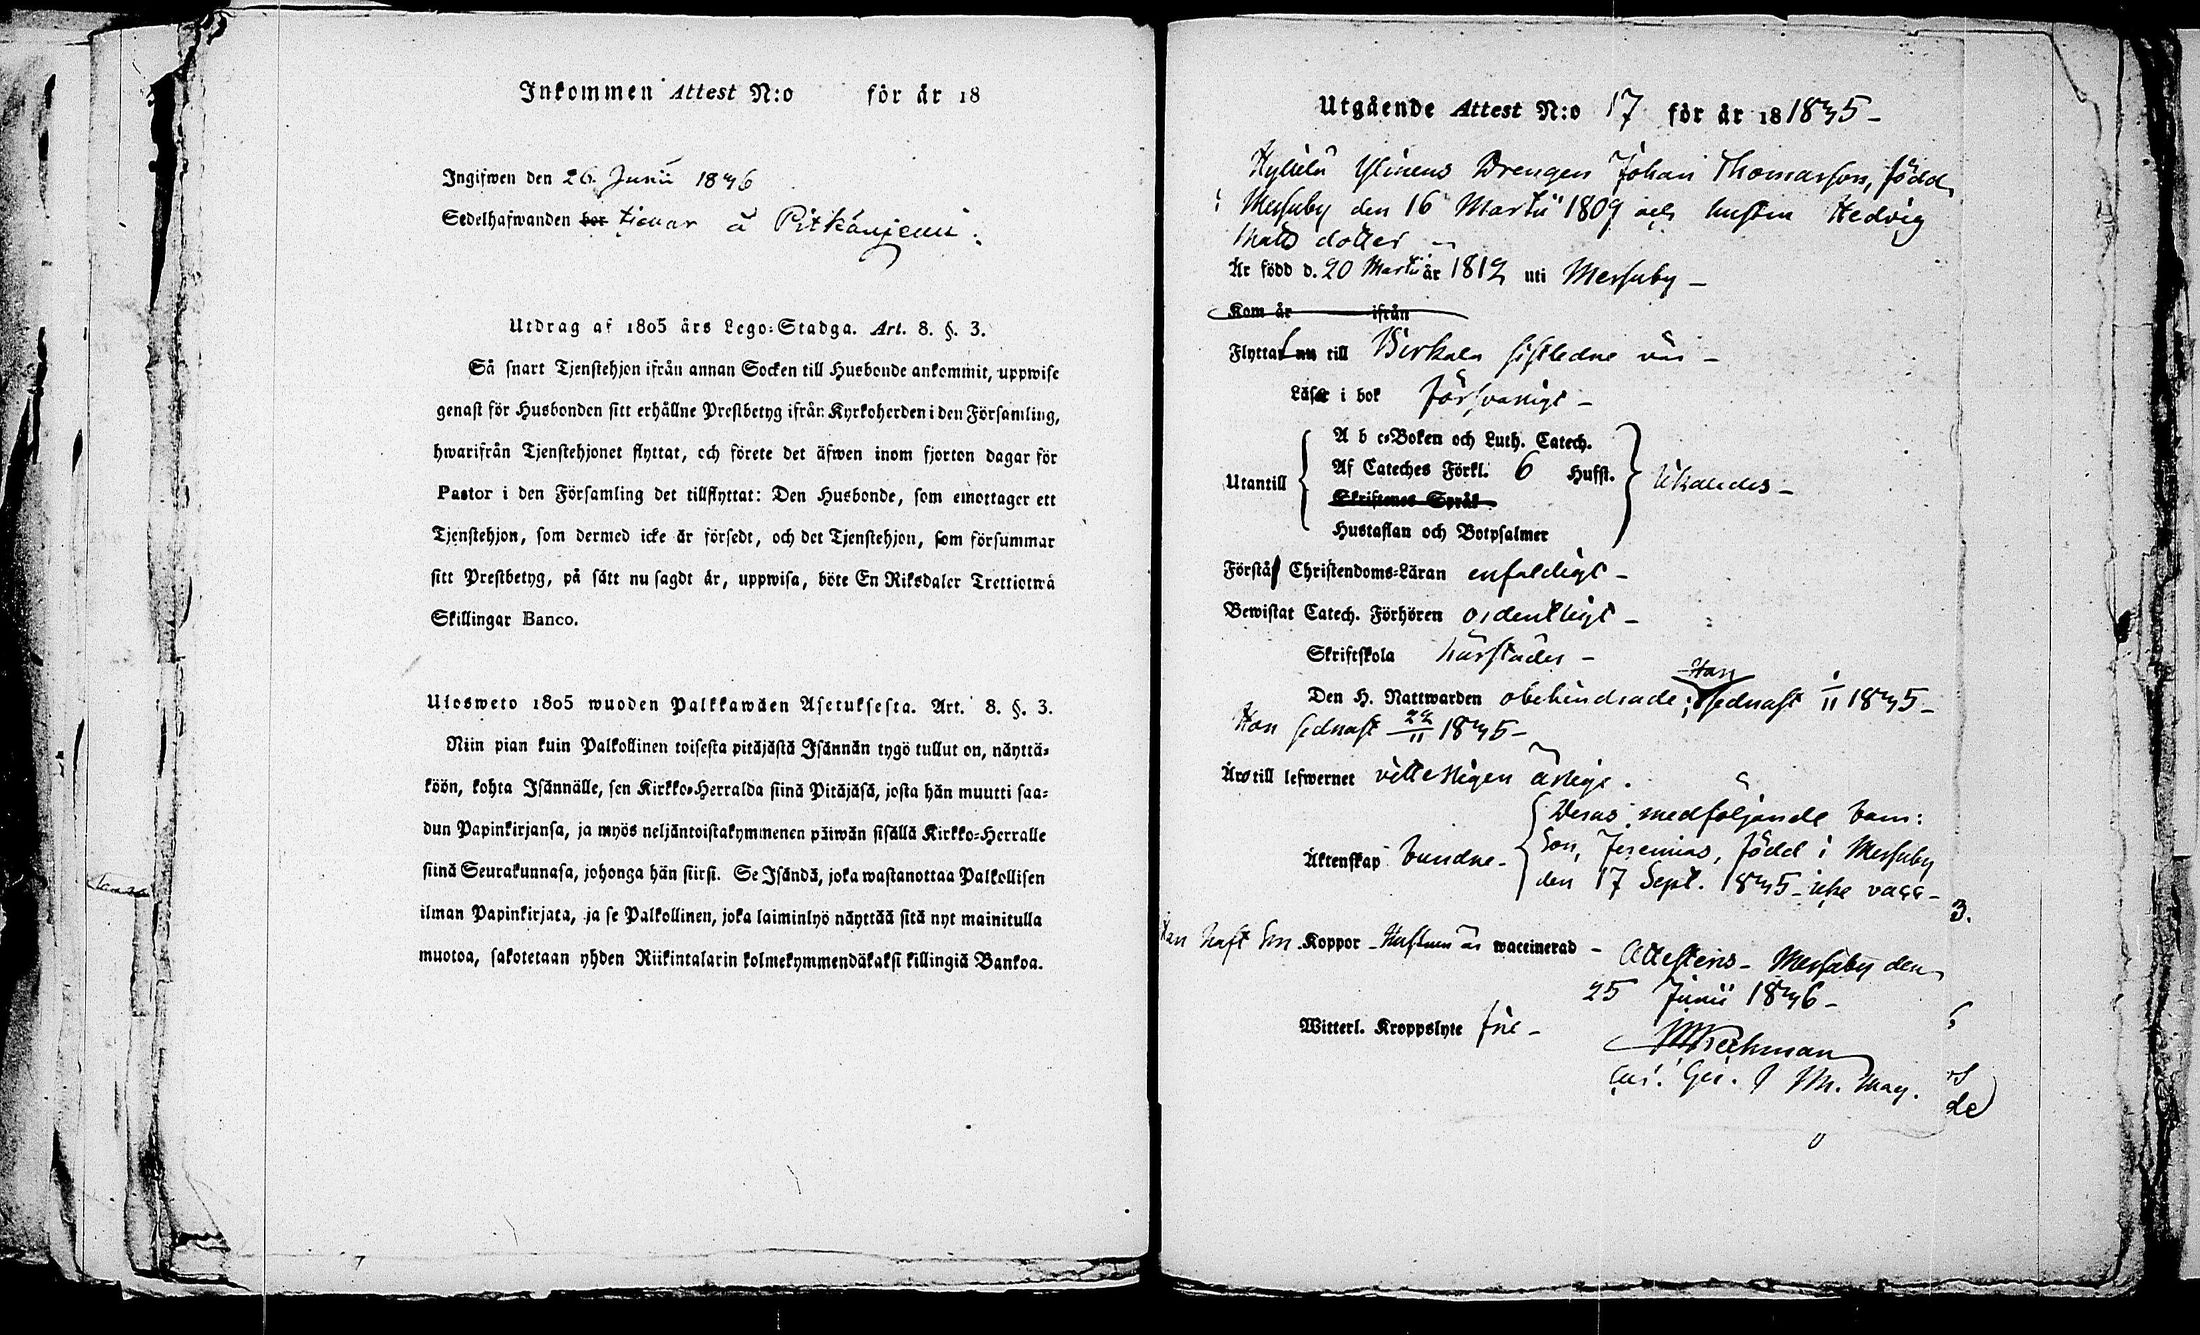 Inkommen Attest N:o för år 18
Ingifwen den 26 Junii 1836
Sedelhafwanden bor tienar å Pitkäniemi.
Utdrag af 1805 års Lego-Stadga. Art. 8. §. 3.
Så snart Tjenstehjon ifrån annan Socken till Husbonde ankommit, uppwise
genast för Husbonden sitt erhållne Prestbetyg ifrån Kyrkoherden i den Församling,
hwarifrån Tjenstehjonet flyttat, och förete det äfwen inom fjorton dagar för
Pastor i den Församling det tillflyttat: Den Husbonde, som emottager ett
Tjenstehjon, som dermed icke är försedt, och det Tjenstehjon, som försummar
sitt Prestbetyg, på sätt nu sagdt är, uppwisa, böte En Riksdaler Trettiotwå
Skillingar Banco.
Ulosweto 1805 wuoden Palkkawäen Asetuksesta. Art. 8. §. 3.
Niin pian kuin Palkollinen toisesta pitäjästä Isännän tygö tullut on, näyttä-
köön, kohta Isännälle, sen Kirkko-Herralda siinä Pitäjäsä, josta hän muutti saa-
dun Papinkirjansa, ja myös neljäntoistakymmenen päiwän sisällä Kirkko-Herralle
siinä Seurakunnasa, johonga hän siirsi. Se Isändä, joka wastanottaa Palkollisen
ilman Papinkirjata, ja se Palkollinen, joka laiminlyö näyttää sitä nyt mainitulla
muotoa, sakotetaan yhden Riikintalarin kolmekymmendäkaksi killingiä Bankoa.
Utgående Attest N:o 17 för år 18 1835 -
Ylinens Drengen Johan Thomasson, född
i Messuby den 16 Martii 1809 och hustru Hedvig
Mats dotter -
Är född d. 20 Martii år 1812 uti Messuby -
Kom år ifrån
Flyttat nu till Birkala sistledne vår -
Läser i bok försvarligt -
A b c-Boken och Luth. Catech.
Utantill Af Cateches Förkl. 6 Hufst.
Skriftenes Språk
Hustaflan och Botpsalmer
Förstå Christendoms-Läran enfaldigt -
Bewistat Catech. Förhören ordentligt -
Skriftskola härstädes -
Han
Den H. Nattwarden obehindrade; sednast 1/11 1835 -
Hon sednast 22/11 1835 -
Äro till lefwernet vitterligen ärlige.
Deras medföljande barn:
Äktenskap bundne - Son, Jeremias, född i Messuby
den 17 Sept. 1835 - icke vacc -
3.
Han haft Koppor - Hustrun är waccinerad - Attesteras - Messuby den
25 Junii 1836 -
Witterl. Kroppslyte frie -
de